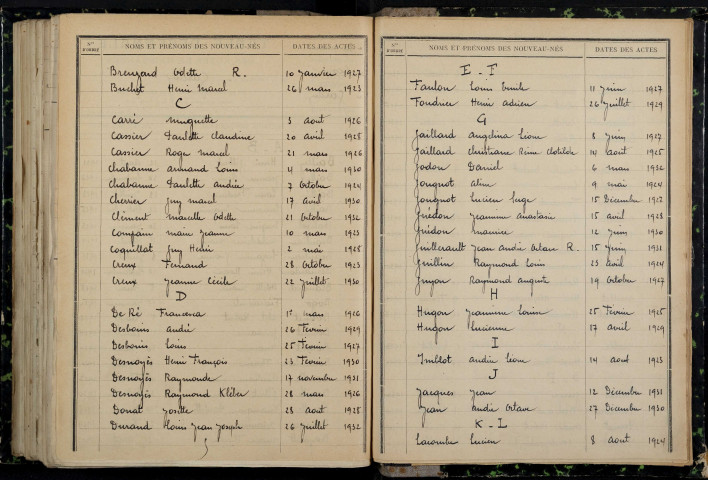 Nos D'ORDRE NOMS ET PRÉNOMS DES NOUVEAU-NÉS DATES DES ACTES
Odette R. 10 Janvier 1927
Buchet Henri Marcel 26 mars 1923
C
Carré Muguette 3 aout 1926
Cassier Paulette Claudine 20 avril 1928
Cassier Roger Marcel 21 mars 1926
Chabanne Armand Louis 11 mars 1930
Chabanne Paulette Andrée 7 Octobre 1924
Cherrier Guy Marcel 17 avril 1930
Clément Marcelle Odette 21 Octobre 1932
Compain Marie Jeanne 10 mars 1923
Coquillat Guy Henri 2 mai 1928
Creux Fernand 28 Octobre 1923
Creux Jeanne Cécile 22 Juillet 1930
D
De Ré Francesca 1er mars 1926
Desbouis André 26 Février 1929
Desbouis Louis 25 Février 1927
Desnoyés Henri François 23 Février 1930
Desnoyés Raymonde 17 novembre 1931
Desnoyés Raymond Kléber 28 mars 1926
Donat Josette 28 aout 1928
Durand Louis Jean Joseph 26 Juillet 1932
Nos D'ORDRE NOMS ET PRÉNOMS DES NOUVEAU-NÉS DATES DES ACTES
E - F
Fanton Louis Emile 11 Juin 1927
Fondrier Henri Adrien 26 Juillet 1929
G
Gaillard Angelina Léone 8 Juin 1927
Gaillard Christiane Reine Clotilde 14 aout 1925
Godon Daniel 6 mars 1932
Gougnot Aline 9 mai 1924
Gougnot Lucien Serge 15 Décembre 1927
Guédon Jeannine Anastasie 15 avril 1928
Guédon Maurice 12 Juin 1930
Guillerault Jean André Octave R. 15 Juin 1931
Guillin Raymond Louis 23 avril 1924
Guyon Raymond Auguste 19 Octobre 1927
H
Hugon Jeannine Louise 25 Février 1925
Hugon Lucienne 17 avril 1929
I
Imblot Léone 14 aout 1923
J
Jacques Jean 12 Décembre 1931
Jean André Octave 27 Décembre 1930
K - L
Lacombe Lucien 8 aout 1924